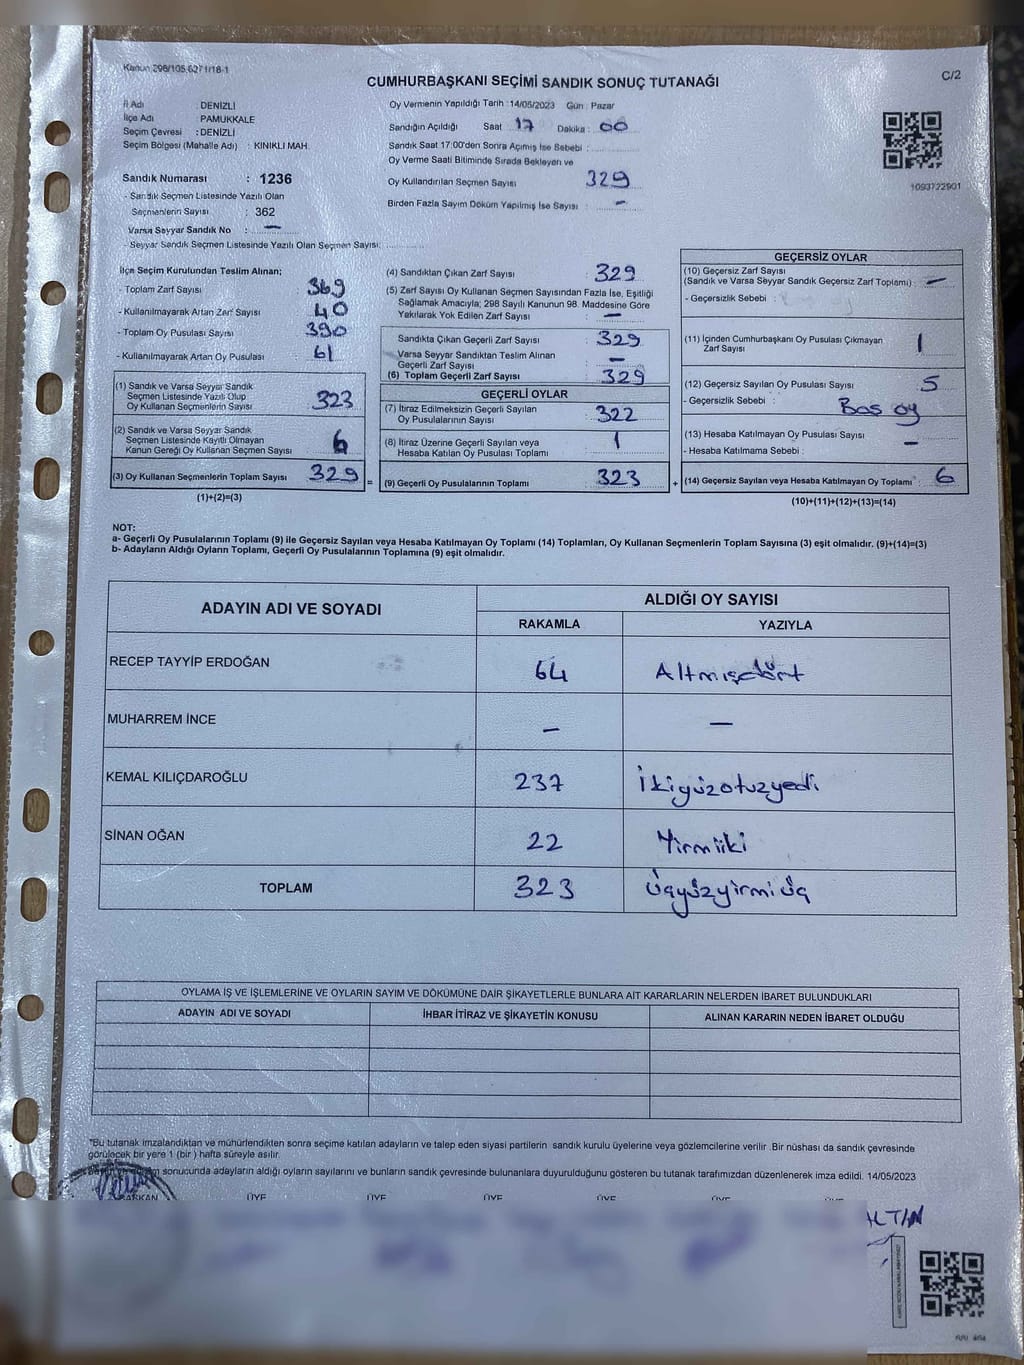 Kanun 298/105 6271/18-1
CUMHURBAŞKANI SEÇİMİ SANDIK SONUÇ TUTANAĞI
C/2
İl Adı : DENİZLİ
İlçe Adı : PAMUKKALE
Seçim Çevresi : DENİZLİ
Seçim Bölgesi (Mahalle Adı) : KINIKLI MAH.
Sandık Numarası : 1236
- Sandık Seçmen Listesinde Yazılı Olan
Seçmenlerin Sayısı : 362
Varsa Seyyar Sandık No : —
- Seyyar Sandık Seçmen Listesinde Yazılı Olan Seçmen Sayısı:
Oy Vermenin Yapıldığı Tarih : 14/05/2023 Gün : Pazar
Sandığın Açıldığı Saat 17 Dakika : 00
Sandık Saat 17:00'den Sonra Açılmış İse Sebebi :
Oy Verme Saati Bitiminde Sırada Bekleyen ve
Oy Kullandırılan Seçmen Sayısı 329
Birden Fazla Sayım Döküm Yapılmış İse Sayısı : -
1093722901
İlçe Seçim Kurulundan Teslim Alınan;
- Toplam Zarf Sayısı : 369
- Kullanılmayarak Artan Zarf Sayısı : 40
- Toplam Oy Pusulası Sayısı : 390
- Kullanılmayarak Artan Oy Pusulası : 61
(1) Sandık ve Varsa Seyyar Sandık
Seçmen Listesinde Yazılı Olup
Oy Kullanan Seçmenlerin Sayısı : 323
(2) Sandık ve Varsa Seyyar Sandık
Seçmen Listesinde Kayıtlı Olmayan
Kanun Gereği Oy Kullanan Seçmen Sayısı : 6
(3) Oy Kullanan Seçmenlerin Toplam Sayısı : 329
(1)+(2)=(3)
(4) Sandıktan Çıkan Zarf Sayısı : 329
(5) Zarf Sayısı Oy Kullanan Seçmen Sayısından Fazla İse, Eşitliği
Sağlamak Amacıyla; 298 Sayılı Kanunun 98. Maddesine Göre
Yakılarak Yok Edilen Zarf Sayısı : —
Sandıkta Çıkan Geçerli Zarf Sayısı : 329
Varsa Seyyar Sandıktan Teslim Alınan
Geçerli Zarf Sayısı : —
(6) Toplam Geçerli Zarf Sayısı : 329
GEÇERLİ OYLAR
(7) İtiraz Edilmeksizin Geçerli Sayılan
Oy Pusulalarının Sayısı : 322
(8) İtiraz Üzerine Geçerli Sayılan veya
Hesaba Katılan Oy Pusulası Toplamı : 1
= (9) Geçerli Oy Pusulalarının Toplamı : 323
GEÇERSİZ OYLAR
(10) Geçersiz Zarf Sayısı
(Sandık ve Varsa Seyyar Sandık Geçersiz Zarf Toplamı) : —
- Geçersizlik Sebebi :
(11) İçinden Cumhurbaşkanı Oy Pusulası Çıkmayan
Zarf Sayısı : 1
(12) Geçersiz Sayılan Oy Pusulası Sayısı : 5
- Geçersizlik Sebebi : Bos oy
(13) Hesaba Katılmayan Oy Pusulası Sayısı : —
- Hesaba Katılmama Sebebi :
+ (14) Geçersiz Sayılan veya Hesaba Katılmayan Oy Toplamı : 6
(10)+(11)+(12)+(13)=(14)
NOT:
a- Geçerli Oy Pusulalarının Toplamı (9) ile Geçersiz Sayılan veya Hesaba Katılmayan Oy Toplamı (14) Toplamları, Oy Kullanan Seçmenlerin Toplam Sayısına (3) eşit olmalıdır. (9)+(14)=(3)
b- Adayların Aldığı Oyların Toplamı, Geçerli Oy Pusulalarının Toplamına (9) eşit olmalıdır.
ADAYIN ADI VE SOYADI
ALDIĞI OY SAYISI
RAKAMLA YAZIYLA
RECEP TAYYİP ERDOĞAN 64 Altmışdört
MUHARREM İNCE — —
KEMAL KILIÇDAROĞLU 237 İkiyüzotuzyedi
SİNAN OĞAN 22 Yirmiiki
TOPLAM 323 Üçyüzyirmi üç
OYLAMA İŞ VE İŞLEMLERİNE VE OYLARIN SAYIM VE DÖKÜMÜNE DAİR ŞİKAYETLERLE BUNLARA AİT KARARLARIN NELERDEN İBARET BULUNDUKLARI
ADAYIN ADI VE SOYADI İHBAR İTİRAZ VE ŞİKAYETİN KONUSU ALINAN KARARIN NEDEN İBARET OLDUĞU
"Bu tutanak imzalandıktan ve mühürlendikten sonra seçime katılan adayların ve talep eden siyasi partilerin sandık kurulu üyelerine veya gözlemcilerine verilir. Bir nüshası da sandık çevresinde
görülecek bir yere 1 (bir ) hafta süreyle asılır.
sonucunda adayların aldığı oyların sayılarını ve bunların sandık çevresinde bulunanlara duyurulduğunu gösteren bu tutanak tarafımızdan düzenlenerek imza edildi. 14/05/2023
BAŞKAN ÜYE ÜYE ÜYE ÜYE ÜYE ÜYE